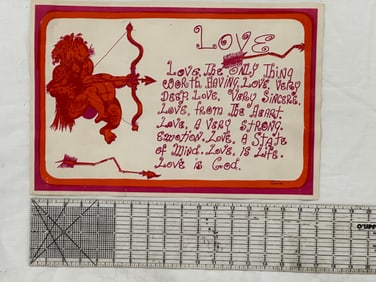 LOVE
LOVE, THE ONLY THING
WORTH HAVING. LOVE, VERY
DEEP LOVE, VERY SINCERE.
LOVE, FROM THE HEART.
LOVE, A VERY STRONG
EMOTION. LOVE, A STATE
OF MIND. LOVE, IS LIFE.
LOVE IS GOD.